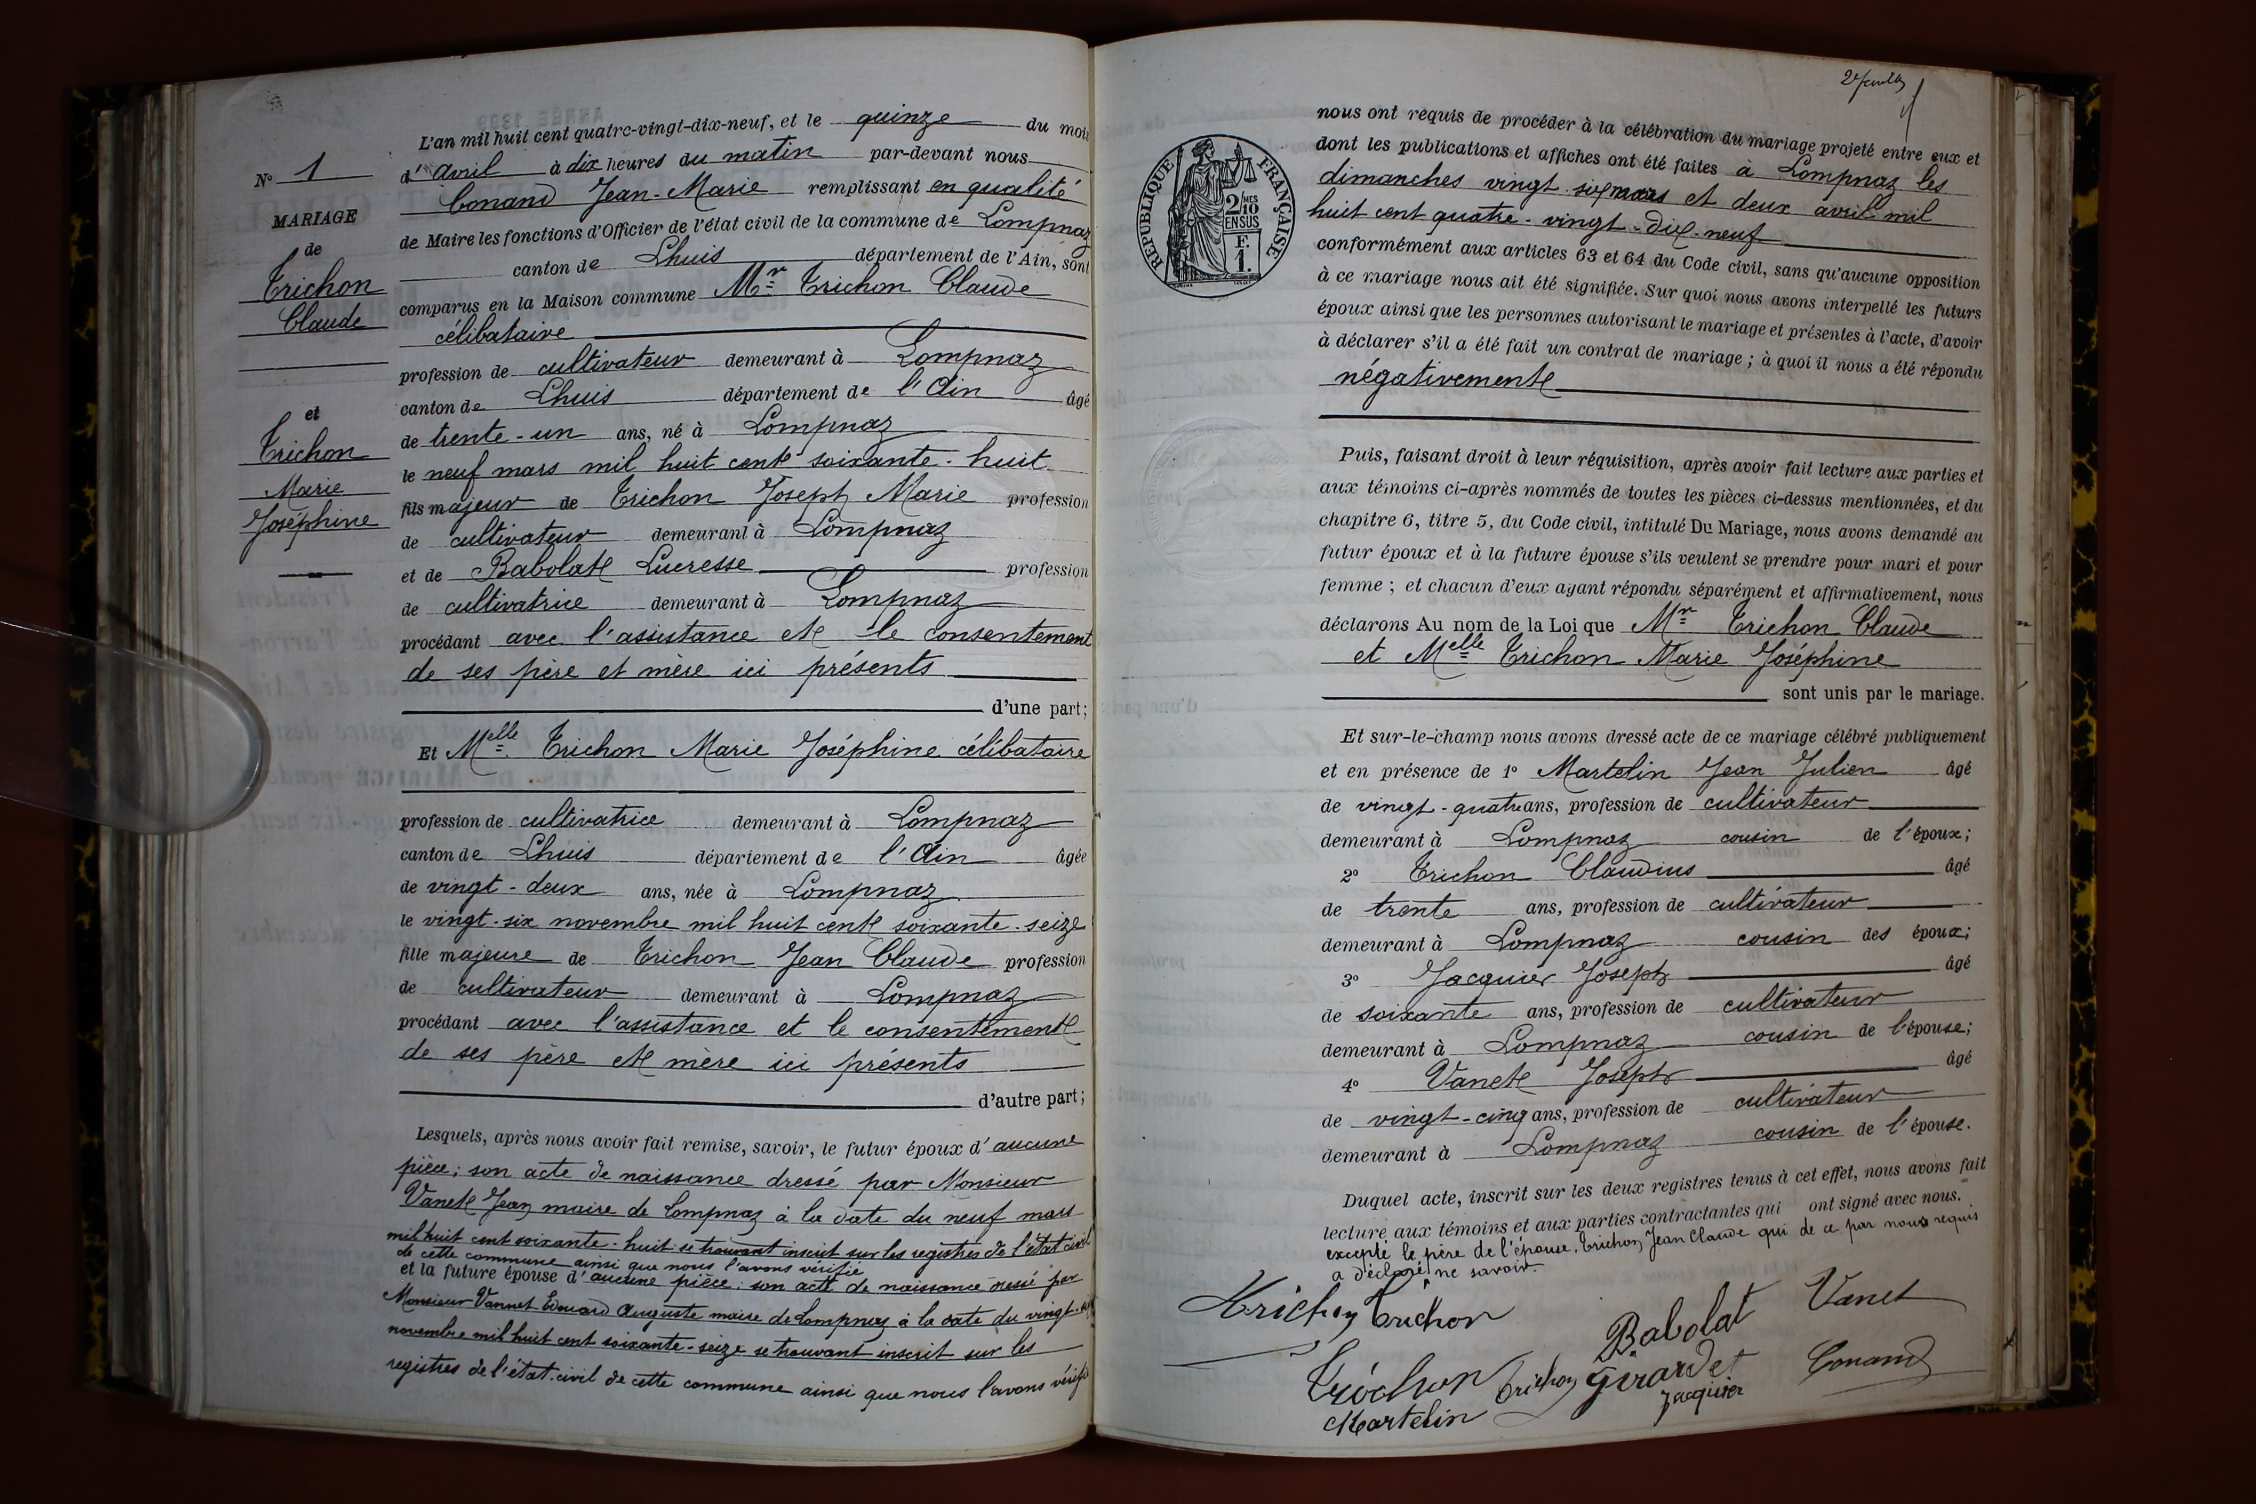 N° 1
MARIAGE
de
Trichon
Claude
et
Trichon
Marie
Joséphine
L'an mil huit cent quatre-vingt-dix-neuf, et le quinze du mois
d'avril à dix heures du matin par-devant nous
Conand Jean-Marie remplissant en qualité
de Maire les fonctions d'Officier de l'état civil de la commune de Lompnaz
canton de Lhuis département de l'Ain, sont
comparus en la Maison commune Mr Trichon Claude
célibataire
profession de cultivateur demeurant à Lompnaz
canton de Lhuis département de l'Ain âgé
de trente-un ans, né à Lompnaz
le neuf mars mil huit cent soixante-huit
fils majeur de Trichon Joseph Marie profession
de cultivateur demeurant à Lompnaz
et de Babolat Lucresse profession
de cultivatrice demeurant à Lompnaz
procédant avec l'assistance et le consentement
de ses père et mère ici présents
d'une part;
Et Melle Trichon Marie Joséphine célibataire
profession de cultivatrice demeurant à Lompnaz
canton de Lhuis département de l'Ain âgée
de vingt-deux ans, née à Lompnaz
le vingt-six novembre mil huit cent soixante-seize
fille majeure de Trichon Jean Claude profession
de cultivateur demeurant à Lompnaz
procédant avec l'assistance et le consentement
de ses père et mère ici présents
d'autre part;
Lesquels, après nous avoir fait remise, savoir, le futur époux d'aucune
pièce; son acte de naissance dressé par Monsieur
Vanet Jean maire de Lompnaz à la date du neuf mars
mil huit cent soixante-huit se trouvant inscrit sur les registres de l'état civil
de cette commune ainsi que nous l'avons vérifié
et la future épouse d'aucune pièce: son acte de naissance dressé par
Monsieur Vannet Edouard Auguste maire de Lompnaz à la date du vingt-six
novembre mil huit cent soixante-seize se trouvant inscrit sur les
registres de l'état-civil de cette commune ainsi que nous l'avons vérifié
2e feuillet
RÉPUBLIQUE FRANÇAISE
2/10 MES
EN SUS
F.
1.
nous ont requis de procéder à la célébration du mariage projeté entre eux et
dont les publications et affiches ont été faites à Lompnaz les
dimanches vingt-six mars et deux avril mil
huit cent quatre-vingt-dix-neuf
conformément aux articles 63 et 64 du Code civil, sans qu'aucune opposition
à ce mariage nous ait été signifiée. Sur quoi nous avons interpellé les futurs
époux ainsi que les personnes autorisant le mariage et présentes à l'acte, d'avoir
à déclarer s'il a été fait un contrat de mariage; à quoi il nous a été répondu
négativement
Puis, faisant droit à leur réquisition, après avoir fait lecture aux parties et
aux témoins ci-après nommés de toutes les pièces ci-dessus mentionnées, et du
chapitre 6, titre 5, du Code civil, intitulé Du Mariage, nous avons demandé au
futur époux et à la future épouse s'ils veulent se prendre pour mari et pour
femme; et chacun d'eux ayant répondu séparément et affirmativement, nous
déclarons Au nom de la Loi que Mr Trichon Claude
et Melle Trichon Marie Joséphine
sont unis par le mariage.
Et sur-le-champ nous avons dressé acte de ce mariage célébré publiquement
et en présence de 1° Martelin Jean Julien âgé
de vingt-quatre ans, profession de cultivateur
demeurant à Lompnaz cousin de l'époux;
2° Trichon Claudius âgé
de trente ans, profession de cultivateur
demeurant à Lompnaz cousin des époux;
3° Jacquier Joseph âgé
de soixante ans, profession de cultivateur
demeurant à Lompnaz cousin de l'épouse;
4° Vanet Joseph âgé
de vingt-cinq ans, profession de cultivateur
demeurant à Lompnaz cousin de l'épouse.
Duquel acte, inscrit sur les deux registres tenus à cet effet, nous avons fait
lecture aux témoins et aux parties contractantes qui ont signé avec nous.
excepté le père de l'épouse, Trichon Jean Claude qui de ce par nous requis
a déclaré ne savoir.
Trichon Trichon Babolat Vanet
Trichon Trichon Girardet Conand
Martelin Jacquier